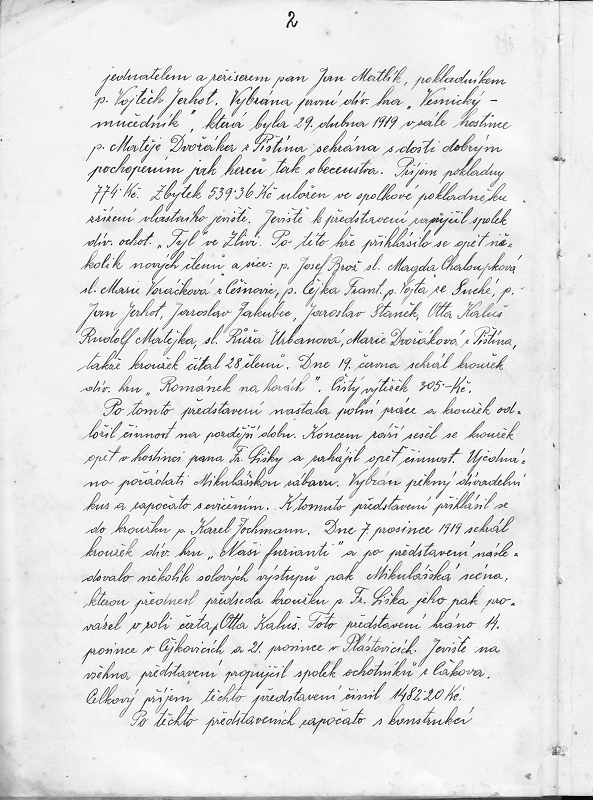 2
jednatelem a režiserem pan Jan Matlík, pokladníkem
p. Vojtěch Jerhot. Vybrána první div. hra „Vesnický
mučedník", která byla 29. dubna 1919 v sále hostince
p. Matěje Dvořáka z Pištína sehrána s dosti dobrým
pochopením jak herců tak obecenstva. Příjem pokladny
774 Kč. Zbytek 539·36 Kč uložen ve spolkové pokladně ku
zřízení vlastního jeviště. Jeviště k představení zapůjčil spolek
div. ochot. „Tyl" ve Zlivi. Po této hře přihlásilo se opět ně-
kolik nových členů a sice: p. Josef Brož sl. Magda Chaloupková
sl. Marie Voráčková z Češnovic, p. Čejka Frant. p. Vojta ze Sucké, p.
Jan Jerhot, Jaroslav Jakubec, Jaroslav Staněk, Otta Kaluš
Rudolf Matějka, sl. Růža Urbanová, Marie Dvořáková z Pištína,
takže kroužek čítal 28 členů. Dne 19. června sehrál kroužek
div. hru „Románek na horách". Čistý výtěžek 305- Kč.
Po tomto představení nastala polní práce a kroužek od-
ložil činnost na pozdější dobu. Koncem září sešel se kroužek
opět v hostinci pana Fr. Lišky a zahájil opět činnost. Ujedná-
no pořádati Mikulášskou zábavu. Vybrán pěkný divadelní
kus a započato s cvičením. K tomuto představení přihlásil se
do kroužku p. Karel Jochmann. Dne 7. prosince 1919 sehrál
kroužek div. hru „Naši furianti" a po představení násle-
dovalo několik solových výstupů pak Mikulášská scéna,
kterou přednesl předseda kroužku p. Fr. Liška jeho pak pro-
vázel v roli čerta, Otta Kaluš. Toto představení hráno 14.
prosince v Čejkovicích a 21. prosince v Plástovicích. Jeviště na
všechna představení propůjčil spolek ochotníků z Čakova.
Celkový příjem těchto představení činil 1482·20 Kč.
Po těchto představeních započato s konstrukcí